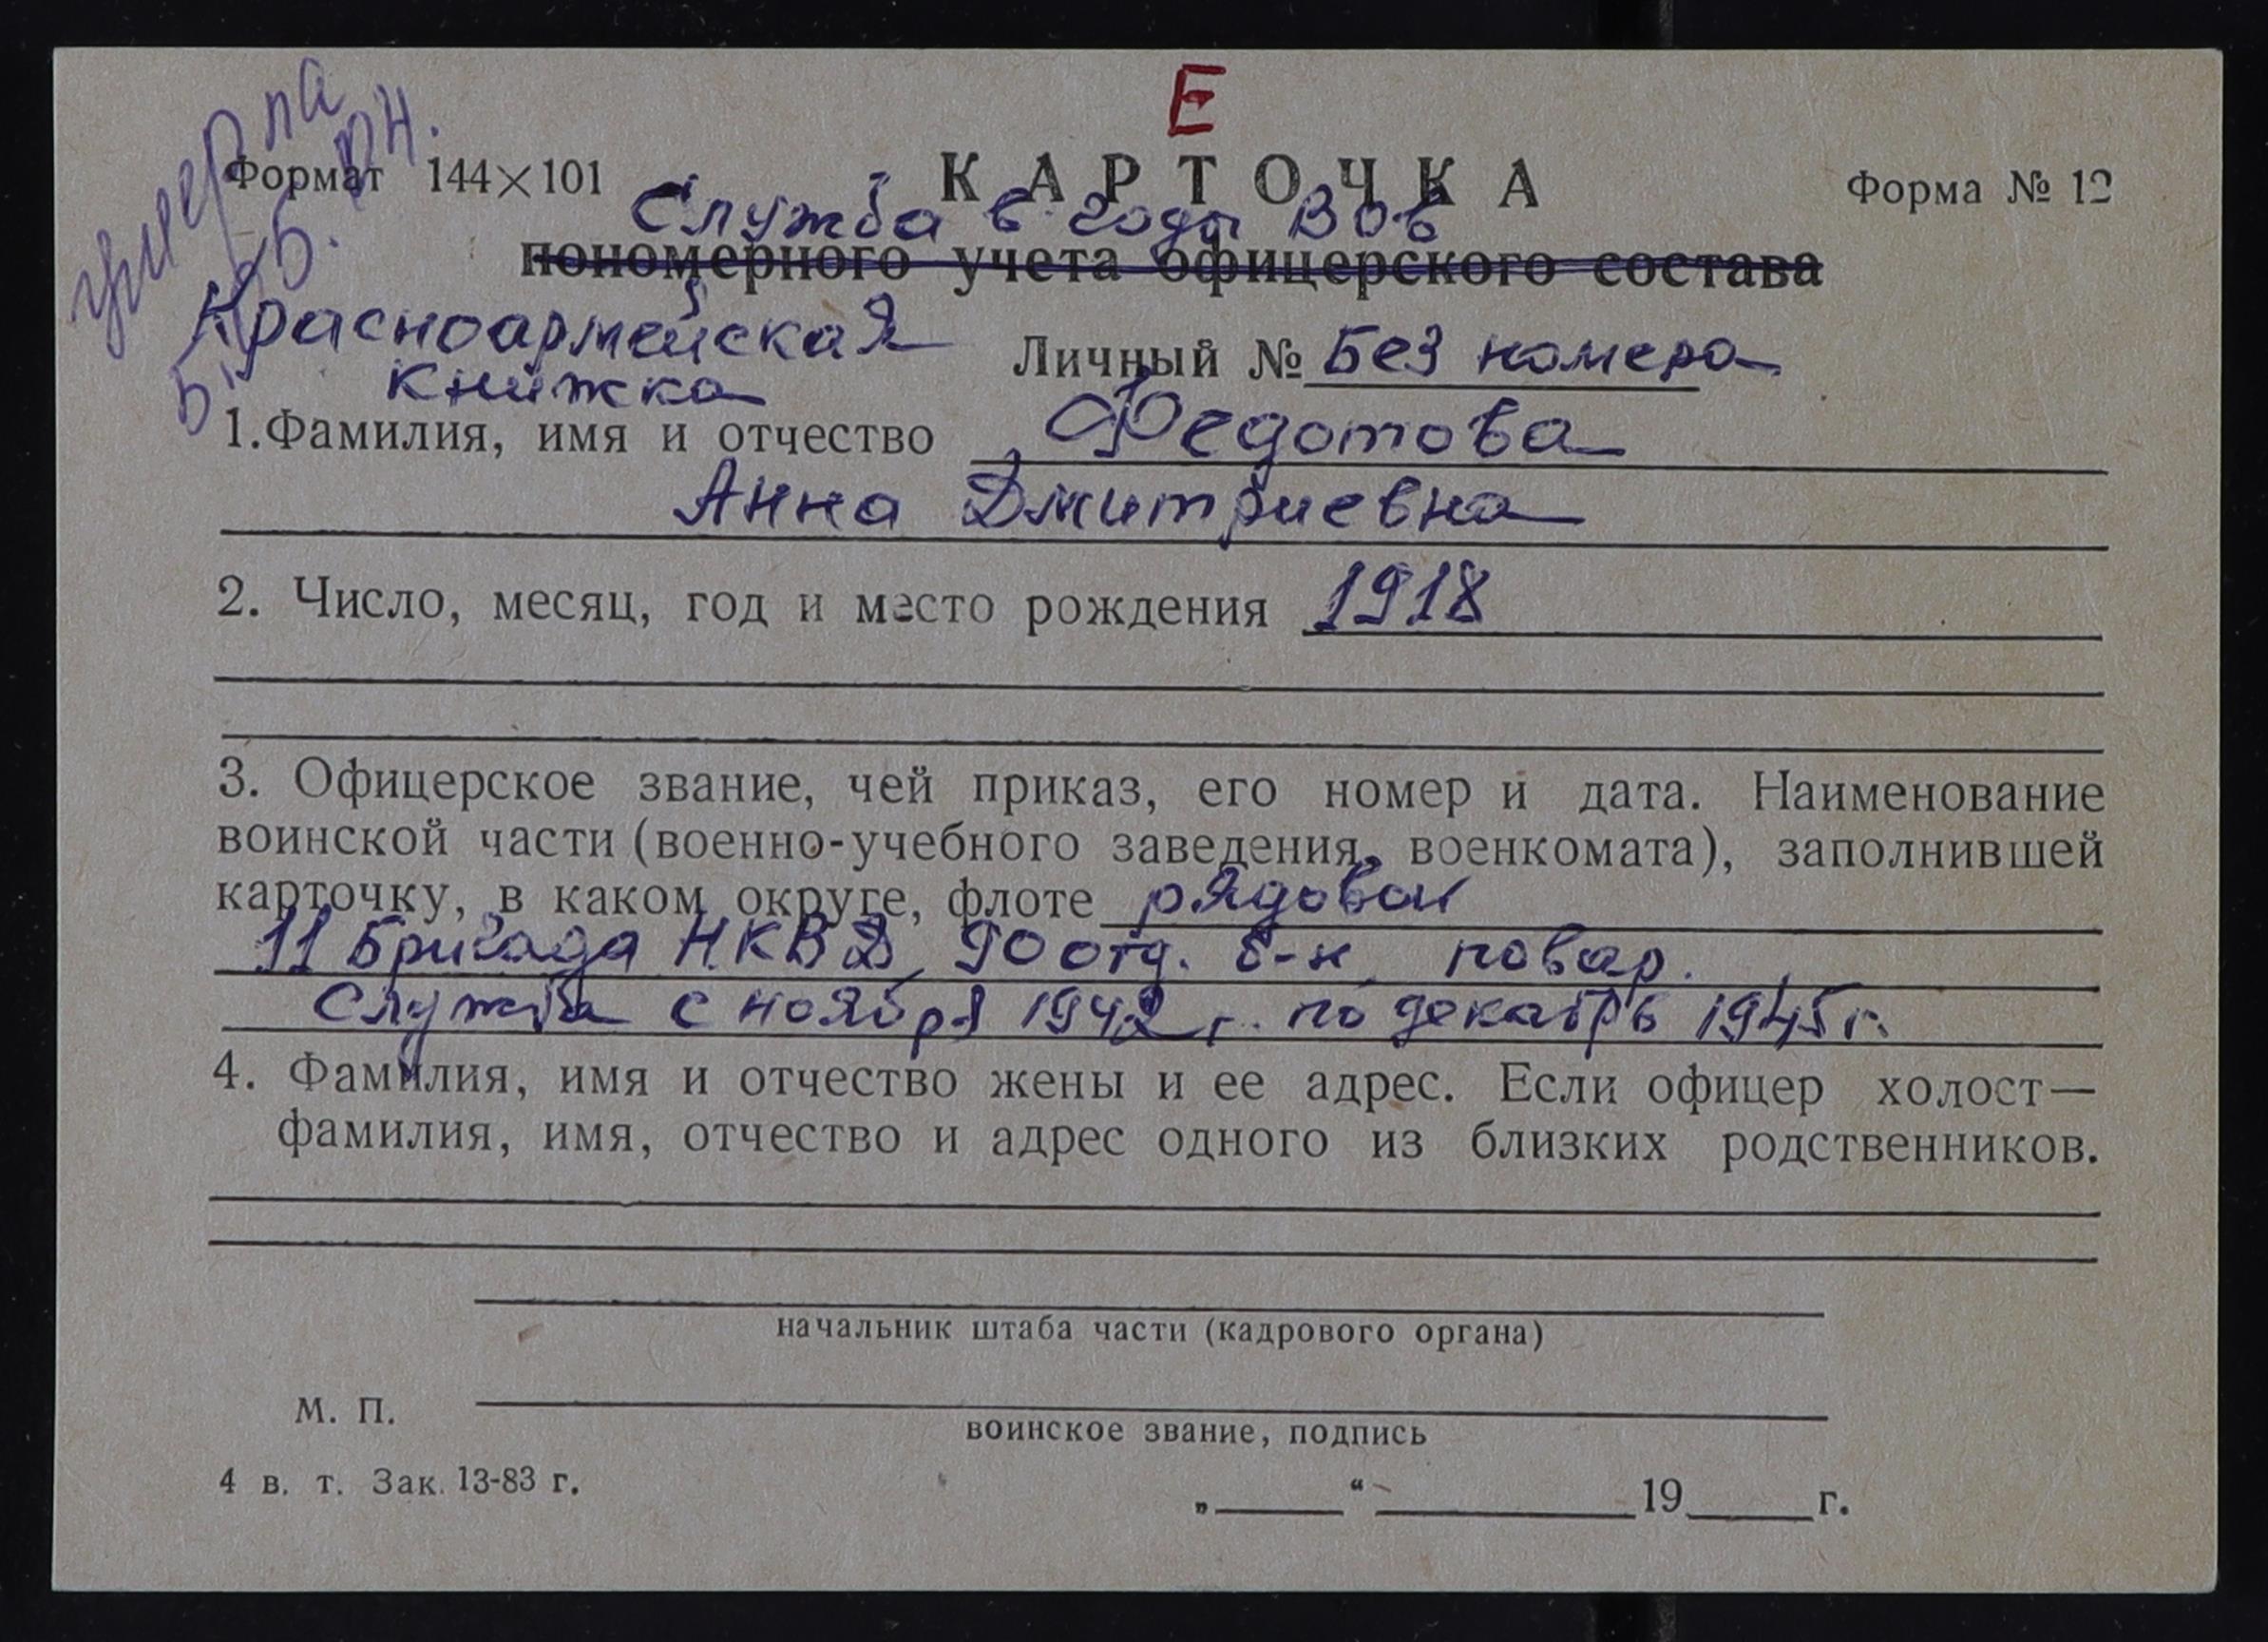 Е
умерла
Формат 144×101
КАРТОЧКА
Форма № 12
Служба в годы ВОв
пономерного учета офицерского состава
Красноармейская
книжка
Личный № Без номера
1.Фамилия, имя и отчество Федотова
Анна Дмитриевна
2. Число, месяц, год и место рождения 1918
3. Офицерское звание, чей приказ, его номер и дата. Наименование
воинской части (военно-учебного заведения, военкомата), заполнившей
карточку, в каком округе, флоте рядовой
11 Бригада НКВД, 90 отд. б-н, повар.
Служба с ноября 1942 г. по декабрь 1945 г.
4. Фамилия, имя и отчество жены и ее адрес. Если офицер холост—
фамилия, имя, отчество и адрес одного из близких родственников.
начальник штаба части (кадрового органа)
М. П.
воинское звание, подпись
4 в. т. Зак. 13-83 г.
„ “ 19 г.